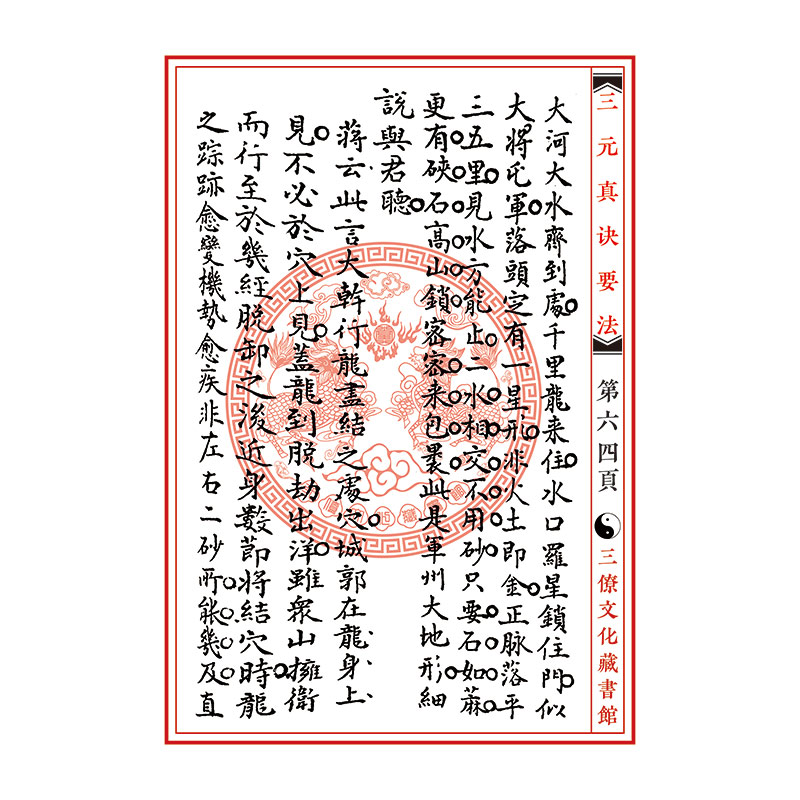 三元真诀要法
第六四頁
三僚文化藏書館
大河大水齊到處千里龍来住水口羅星鎖住門似
大將屯軍落頭定有一星形非火土即金正脉落平
三五里見水方能止二水相交不用砂只要石如蔴
更有硤石高山鎖密密来包裹此是軍州大地形細
說與君聽
蔣云此言大幹行龍盡結之處穴城郭在龍身上
見不必於穴上見蓋龍到脫劫出洋雖衆山擁衛
而行至於幾經脫卸之後近身數節將結穴時龍
之踪跡愈變機勢愈疾非左右二砂所能幾及直